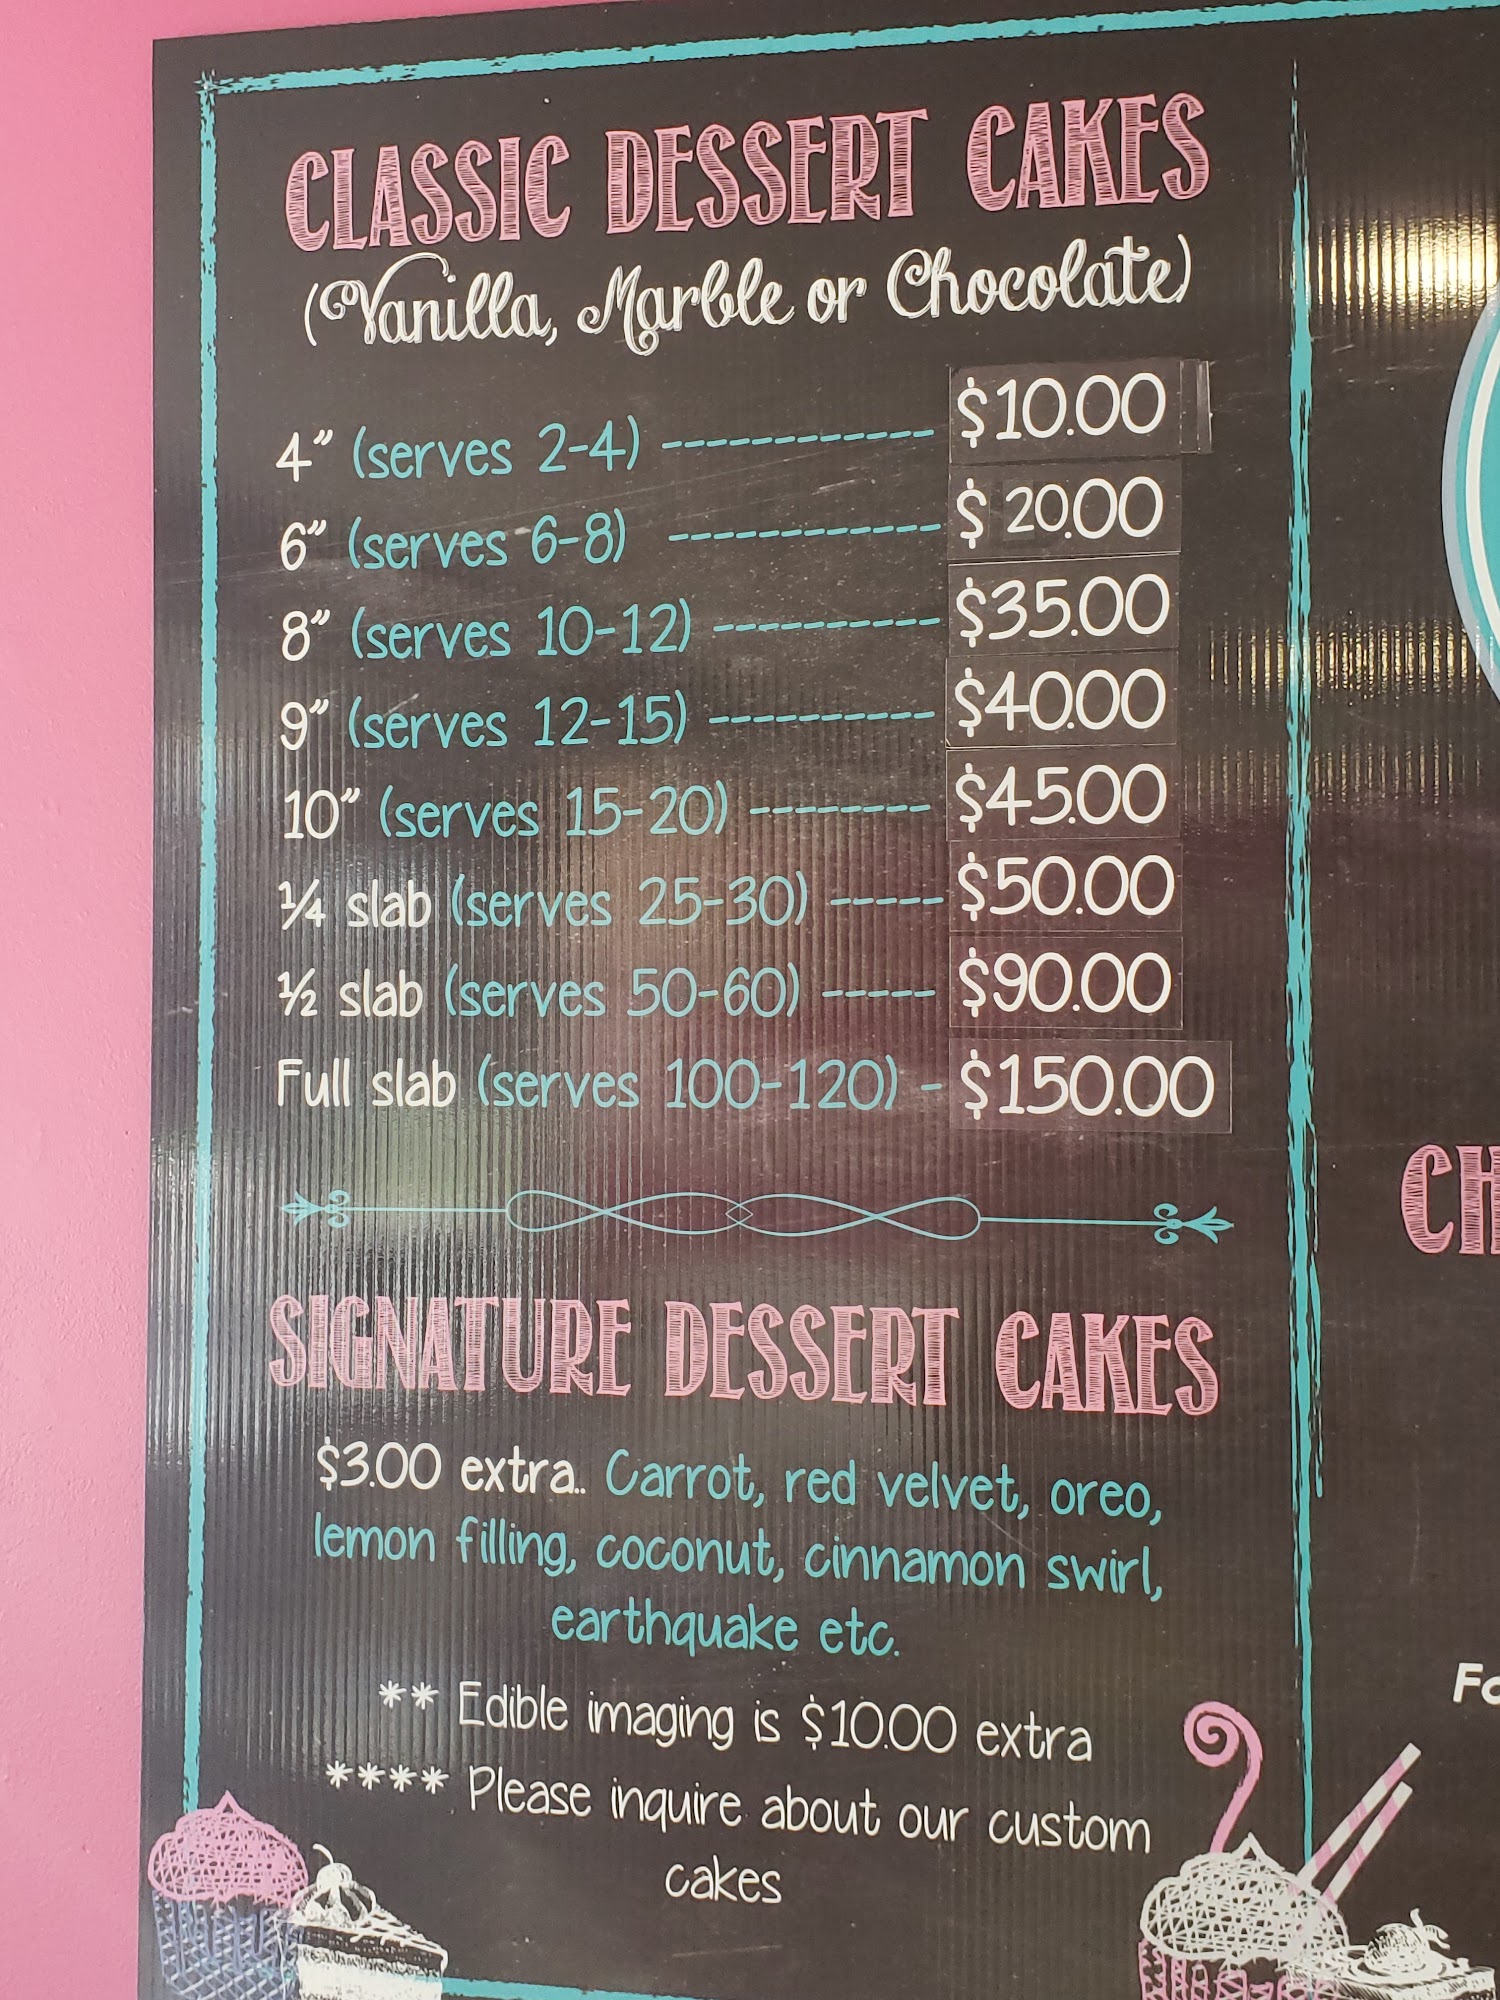 CLASSIC DESSERT CAKES
(Vanilla, Marble or Chocolate)
4" (serves 2-4) ------------ $10.00
6" (serves 6-8) ------------ $20.00
8" (serves 10-12) ---------- $35.00
9" (serves 12-15) ---------- $40.00
10" (serves 15-20) -------- $45.00
¼ slab (serves 25-30) ----- $50.00
½ slab (serves 50-60) ----- $90.00
Full slab (serves 100-120) - $150.00
SIGNATURE DESSERT CAKES
$3.00 extra.. Carrot, red velvet, oreo,
lemon filling, coconut, cinnamon swirl,
earthquake etc.
** Edible imaging is $10.00 extra
**** Please inquire about our custom
cakes
CH
Fo